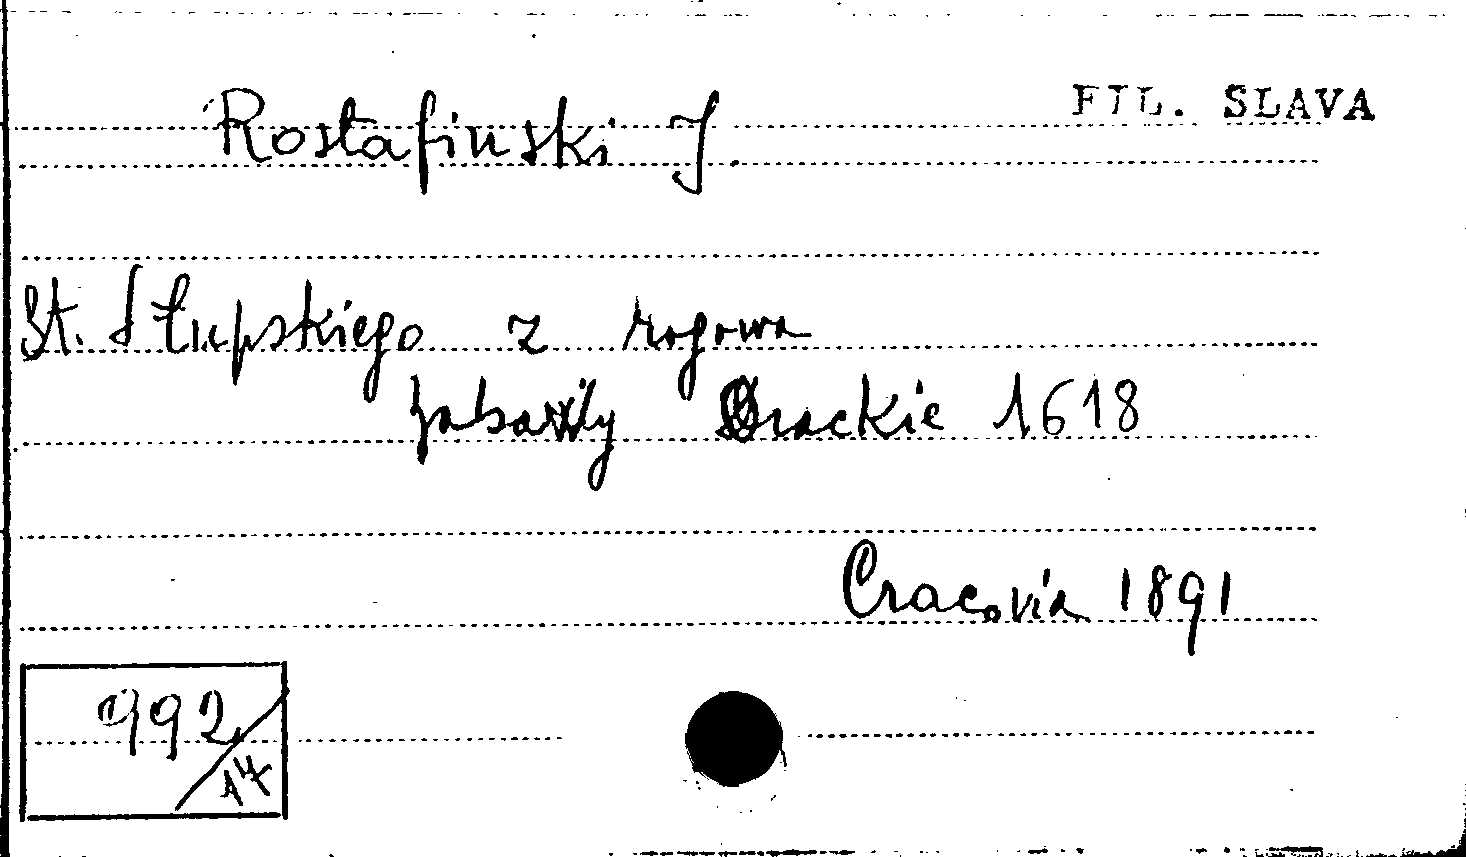 FIL. SLAVA
Rostafinski J.
St. Słupskiego z rogowa
Orackie 1618
Cracovia 1891
992/17